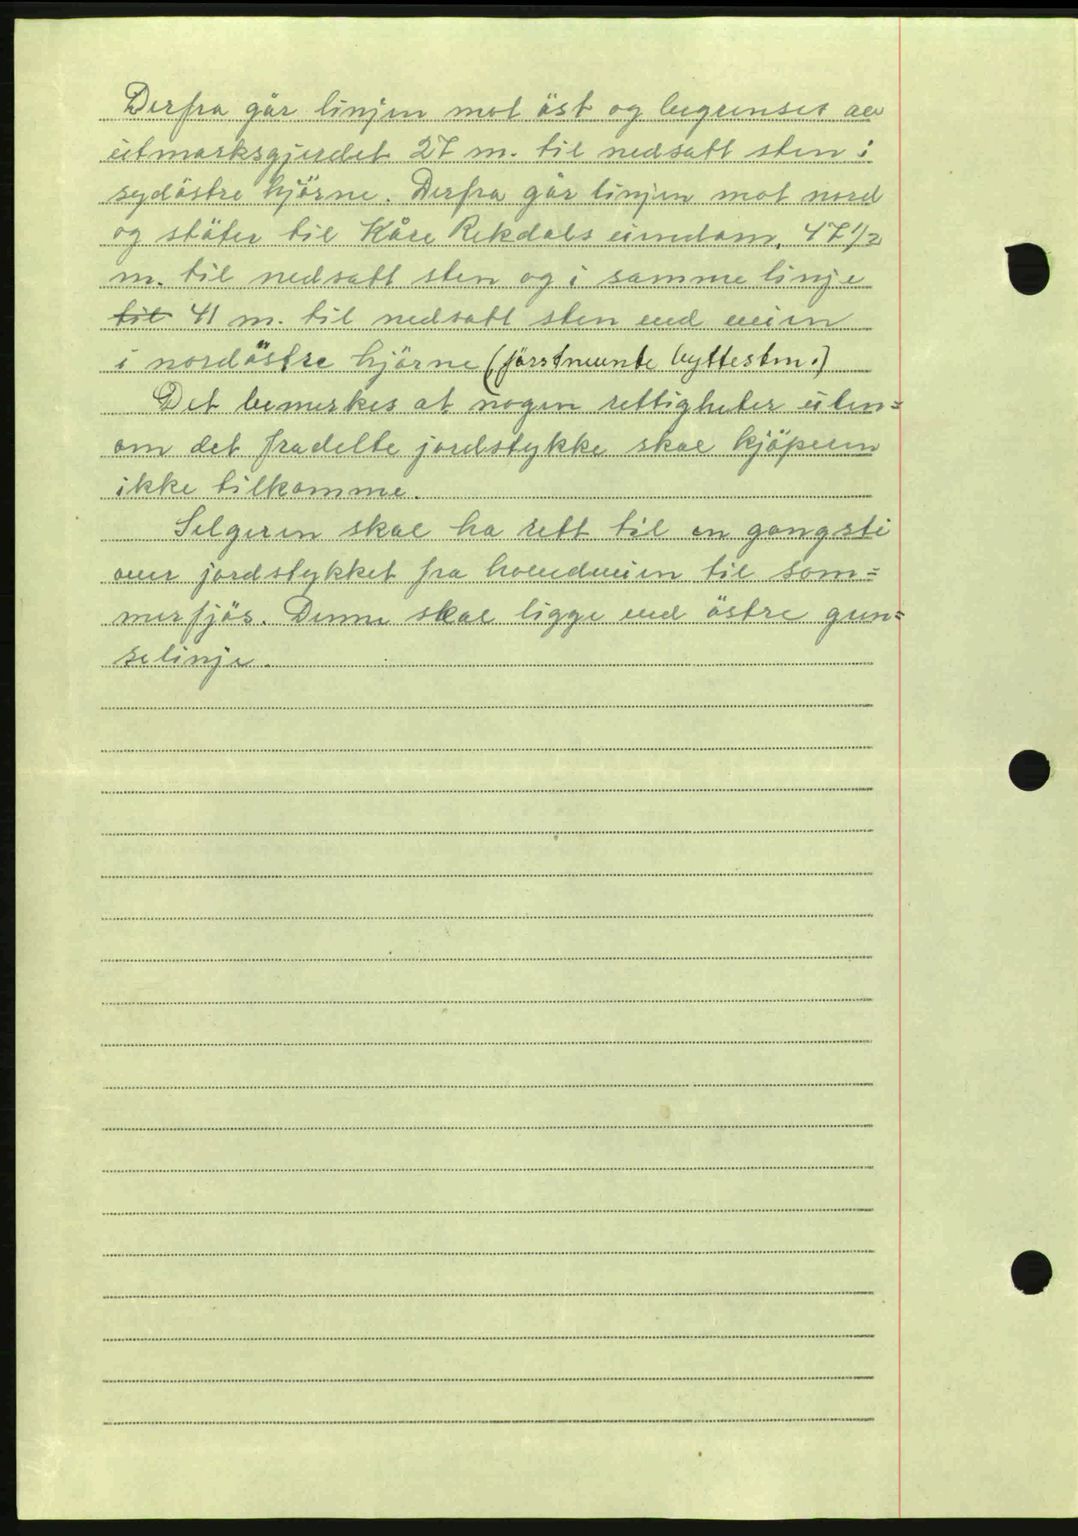 Derfra går linjen mot öst og begrenset av
utmarksgjerdet 27 m. til nedsatt sten i
sydöstre hjörne. Derfra går linjen mot nord
og stöter til Kåre Rekdals eiendom, 47 1/2
m. til nedsatt sten og i samme linje
til 41 m. til nedsatt sten ved veien
i nordöstre hjörne (förstnevnte byttesten.)
Det bemerkes at nogen rettigheter uten=
om det fradelte jordstykke skal kjöperen
ikke tilkomme.
Selgeren skal ha rett til en gangsti
over jordstykket fra hovedveien til som=
merfjös. Denne skal ligge ved östre gren=
selinje.